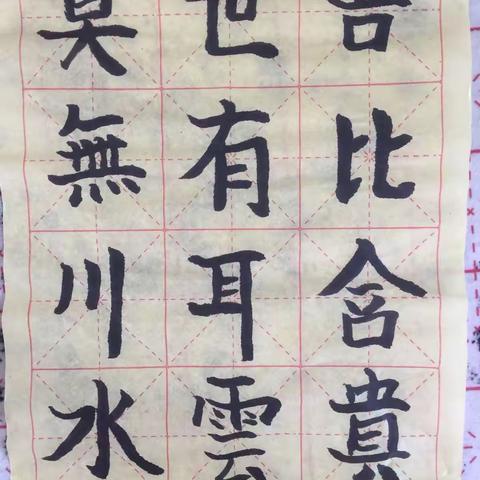 比含貴
世有耳雲
無川水